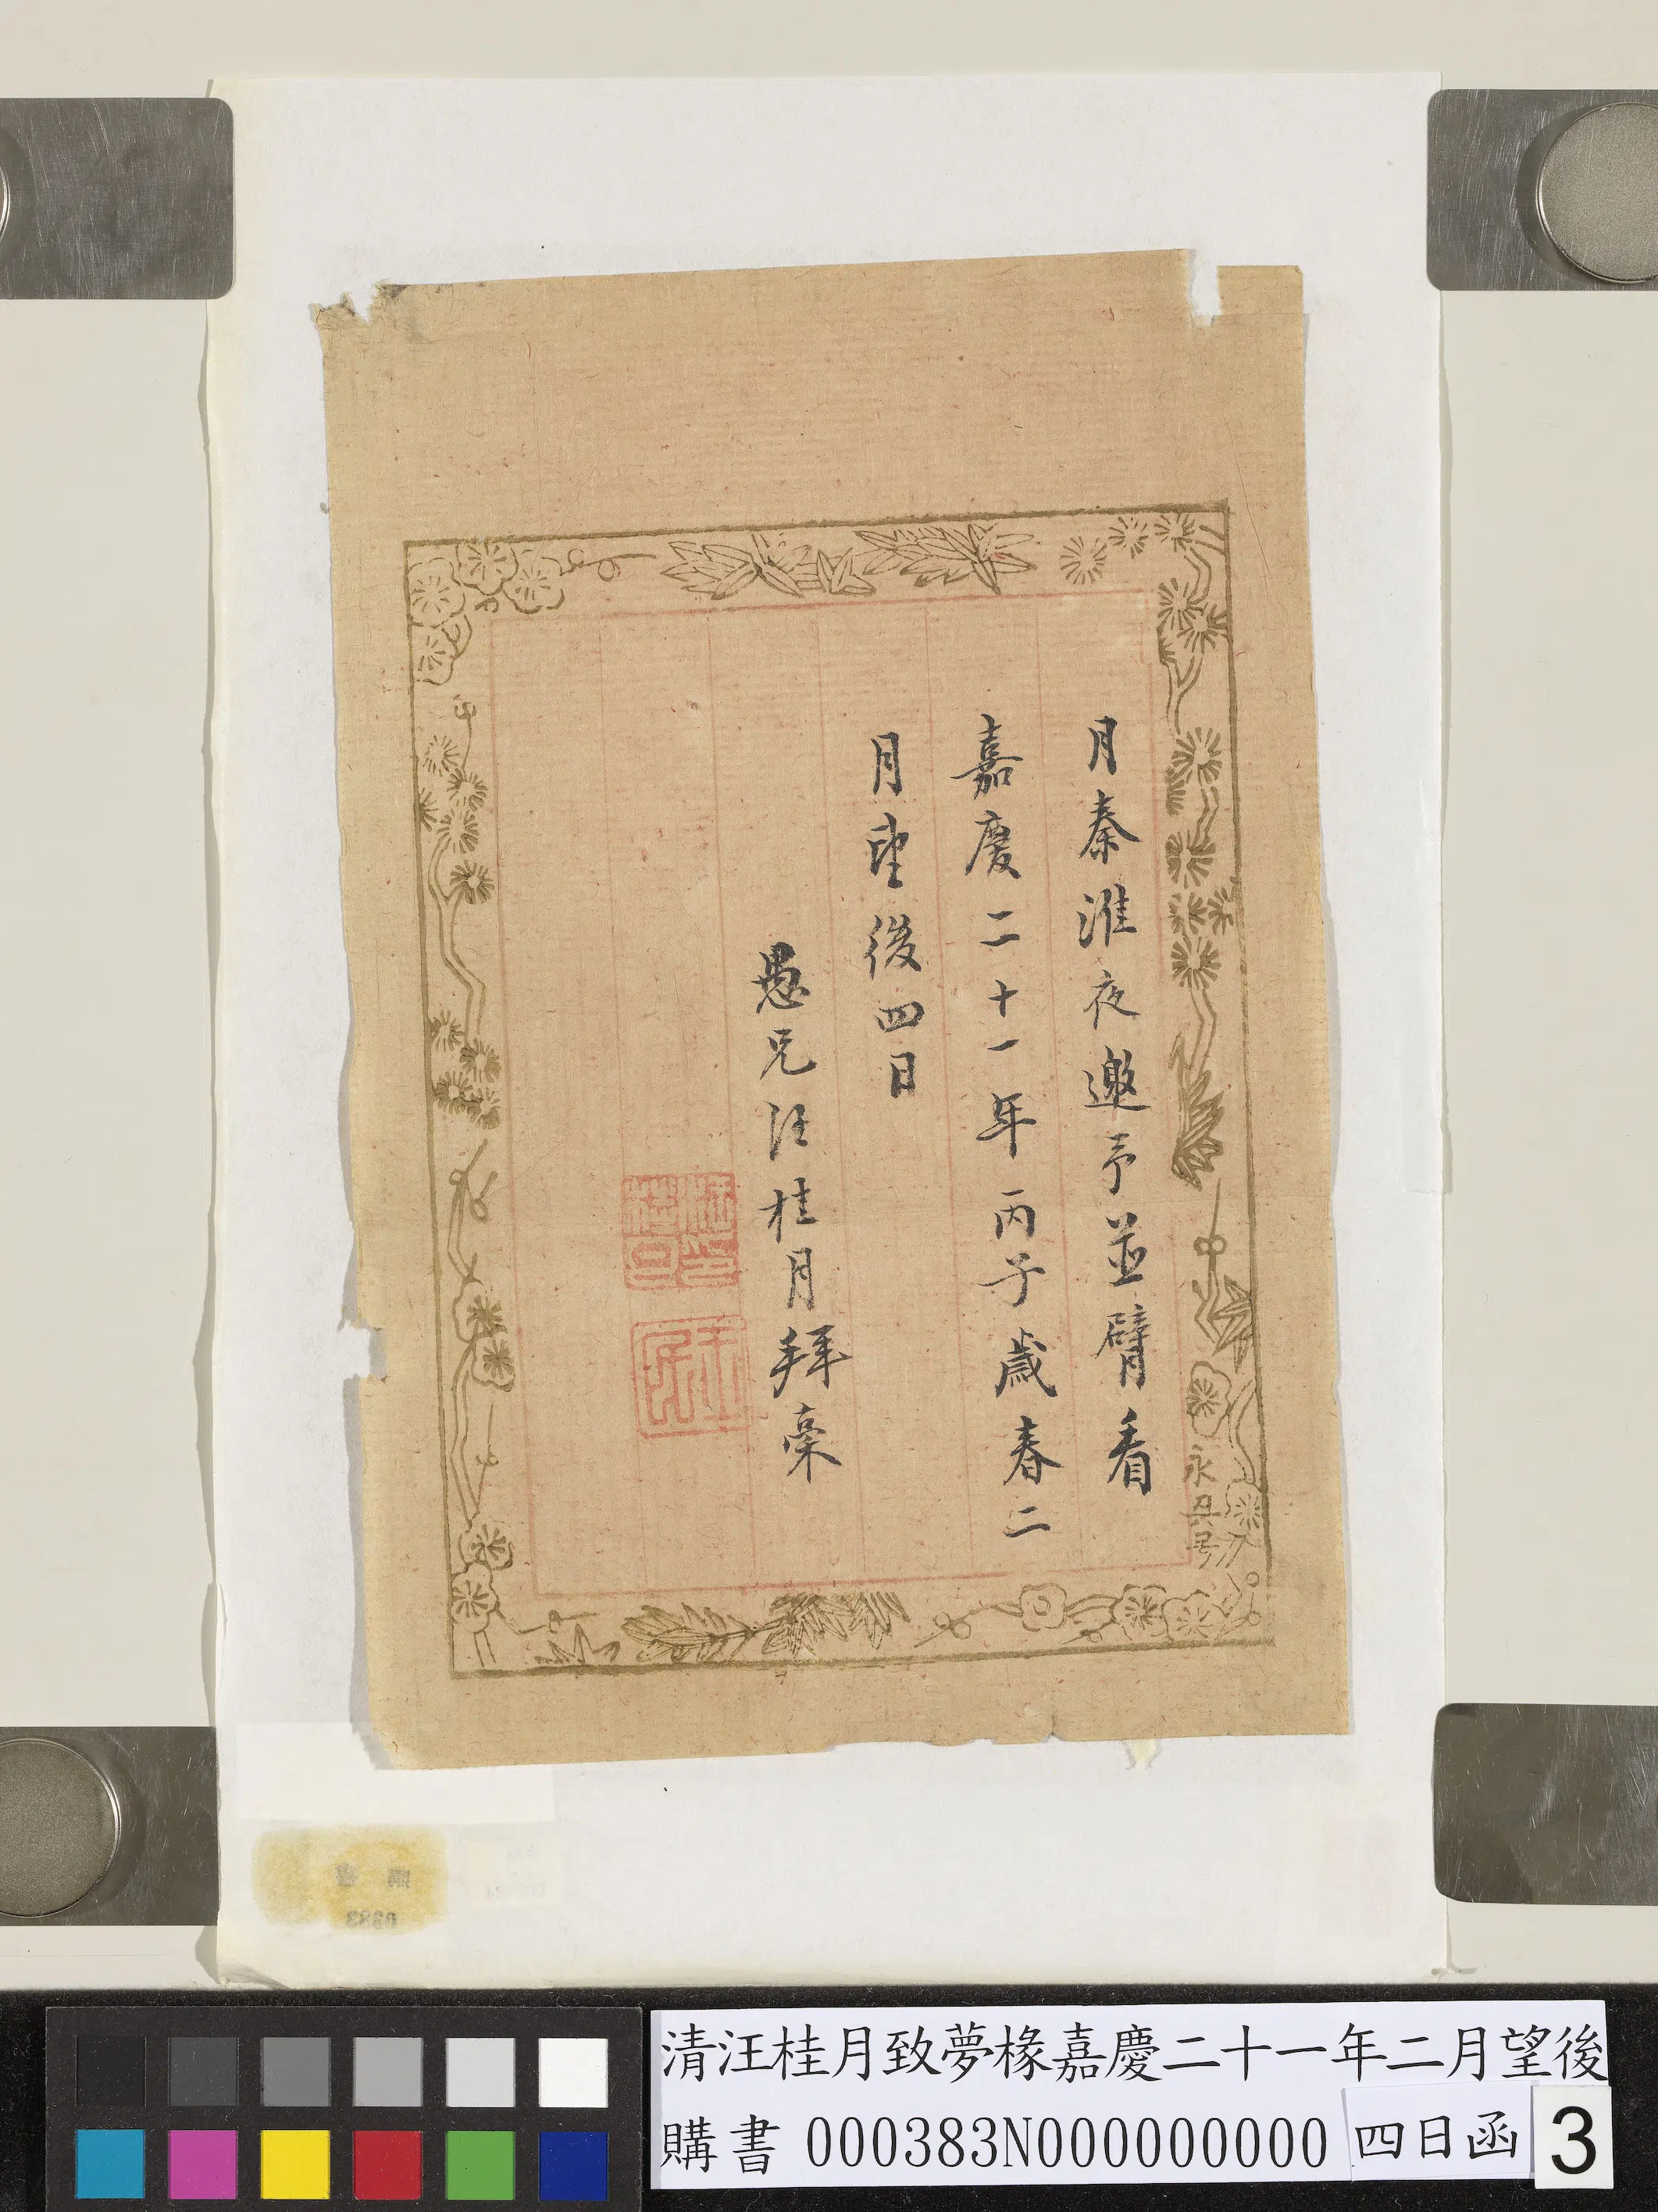 月秦淮夜邀予並臂看
嘉慶二十一年丙子歲春二
月望後四日
愚兄汪桂月拜稾
永興号
清汪桂月致夢椽嘉慶二十一年二月望後
購書 000383N000000000 四日函 3